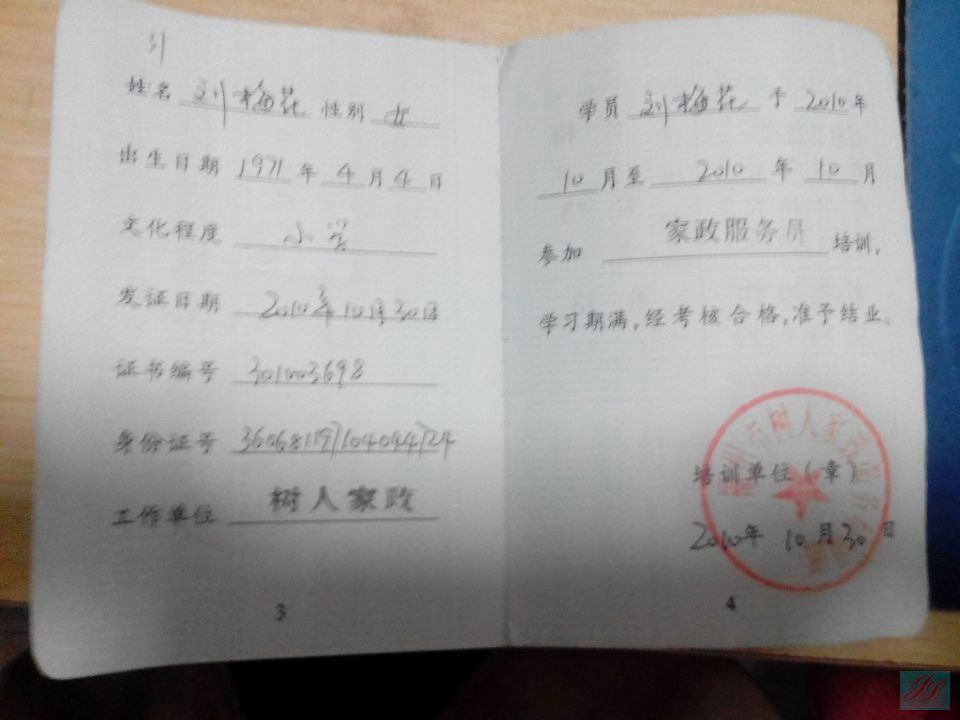 31
姓名 刘梅花 性别 女
出生日期 1971年4月4日
文化程度 小学
发证日期 2010年10月30日
证书编号 301003698
身份证号 360681197104044724
工作单位 树人家政
3
学员 刘梅花 于 2010年
10月至 2010年10月
参加 家政服务员 培训,
学习期满,经考核合格,准予结业。
培训单位(章)
2010年10月30日
4